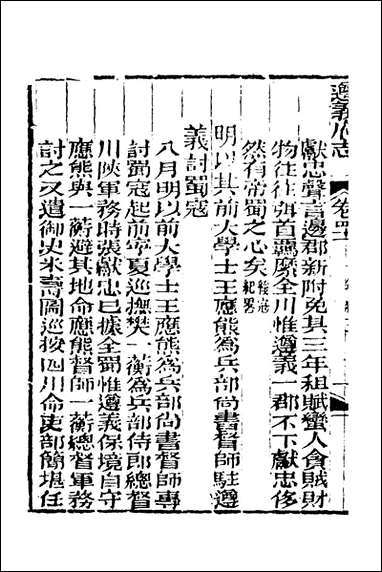 遵義府志 卷四十
獻忠聲言邊郡新附免其三年租賦蠻人貪賦財
物往往弭首羈縻全川惟遵義一郡不下獻忠侈
然有帝蜀之心矣 綏寇紀畧
明以其前大學士王應熊為兵部尚書督師駐遵
義討蜀寇
八月明以前大學士王應熊為兵部尚書督師專
討蜀寇起前寧夏巡撫樊一蘅為兵部侍郎總督
川陝軍務時張獻忠已據全蜀惟遵義保境自守
應熊與一蘅避其地命應熊督師一蘅總督軍務
討之又遣御史米壽圖巡按四川命吏部簡堪任